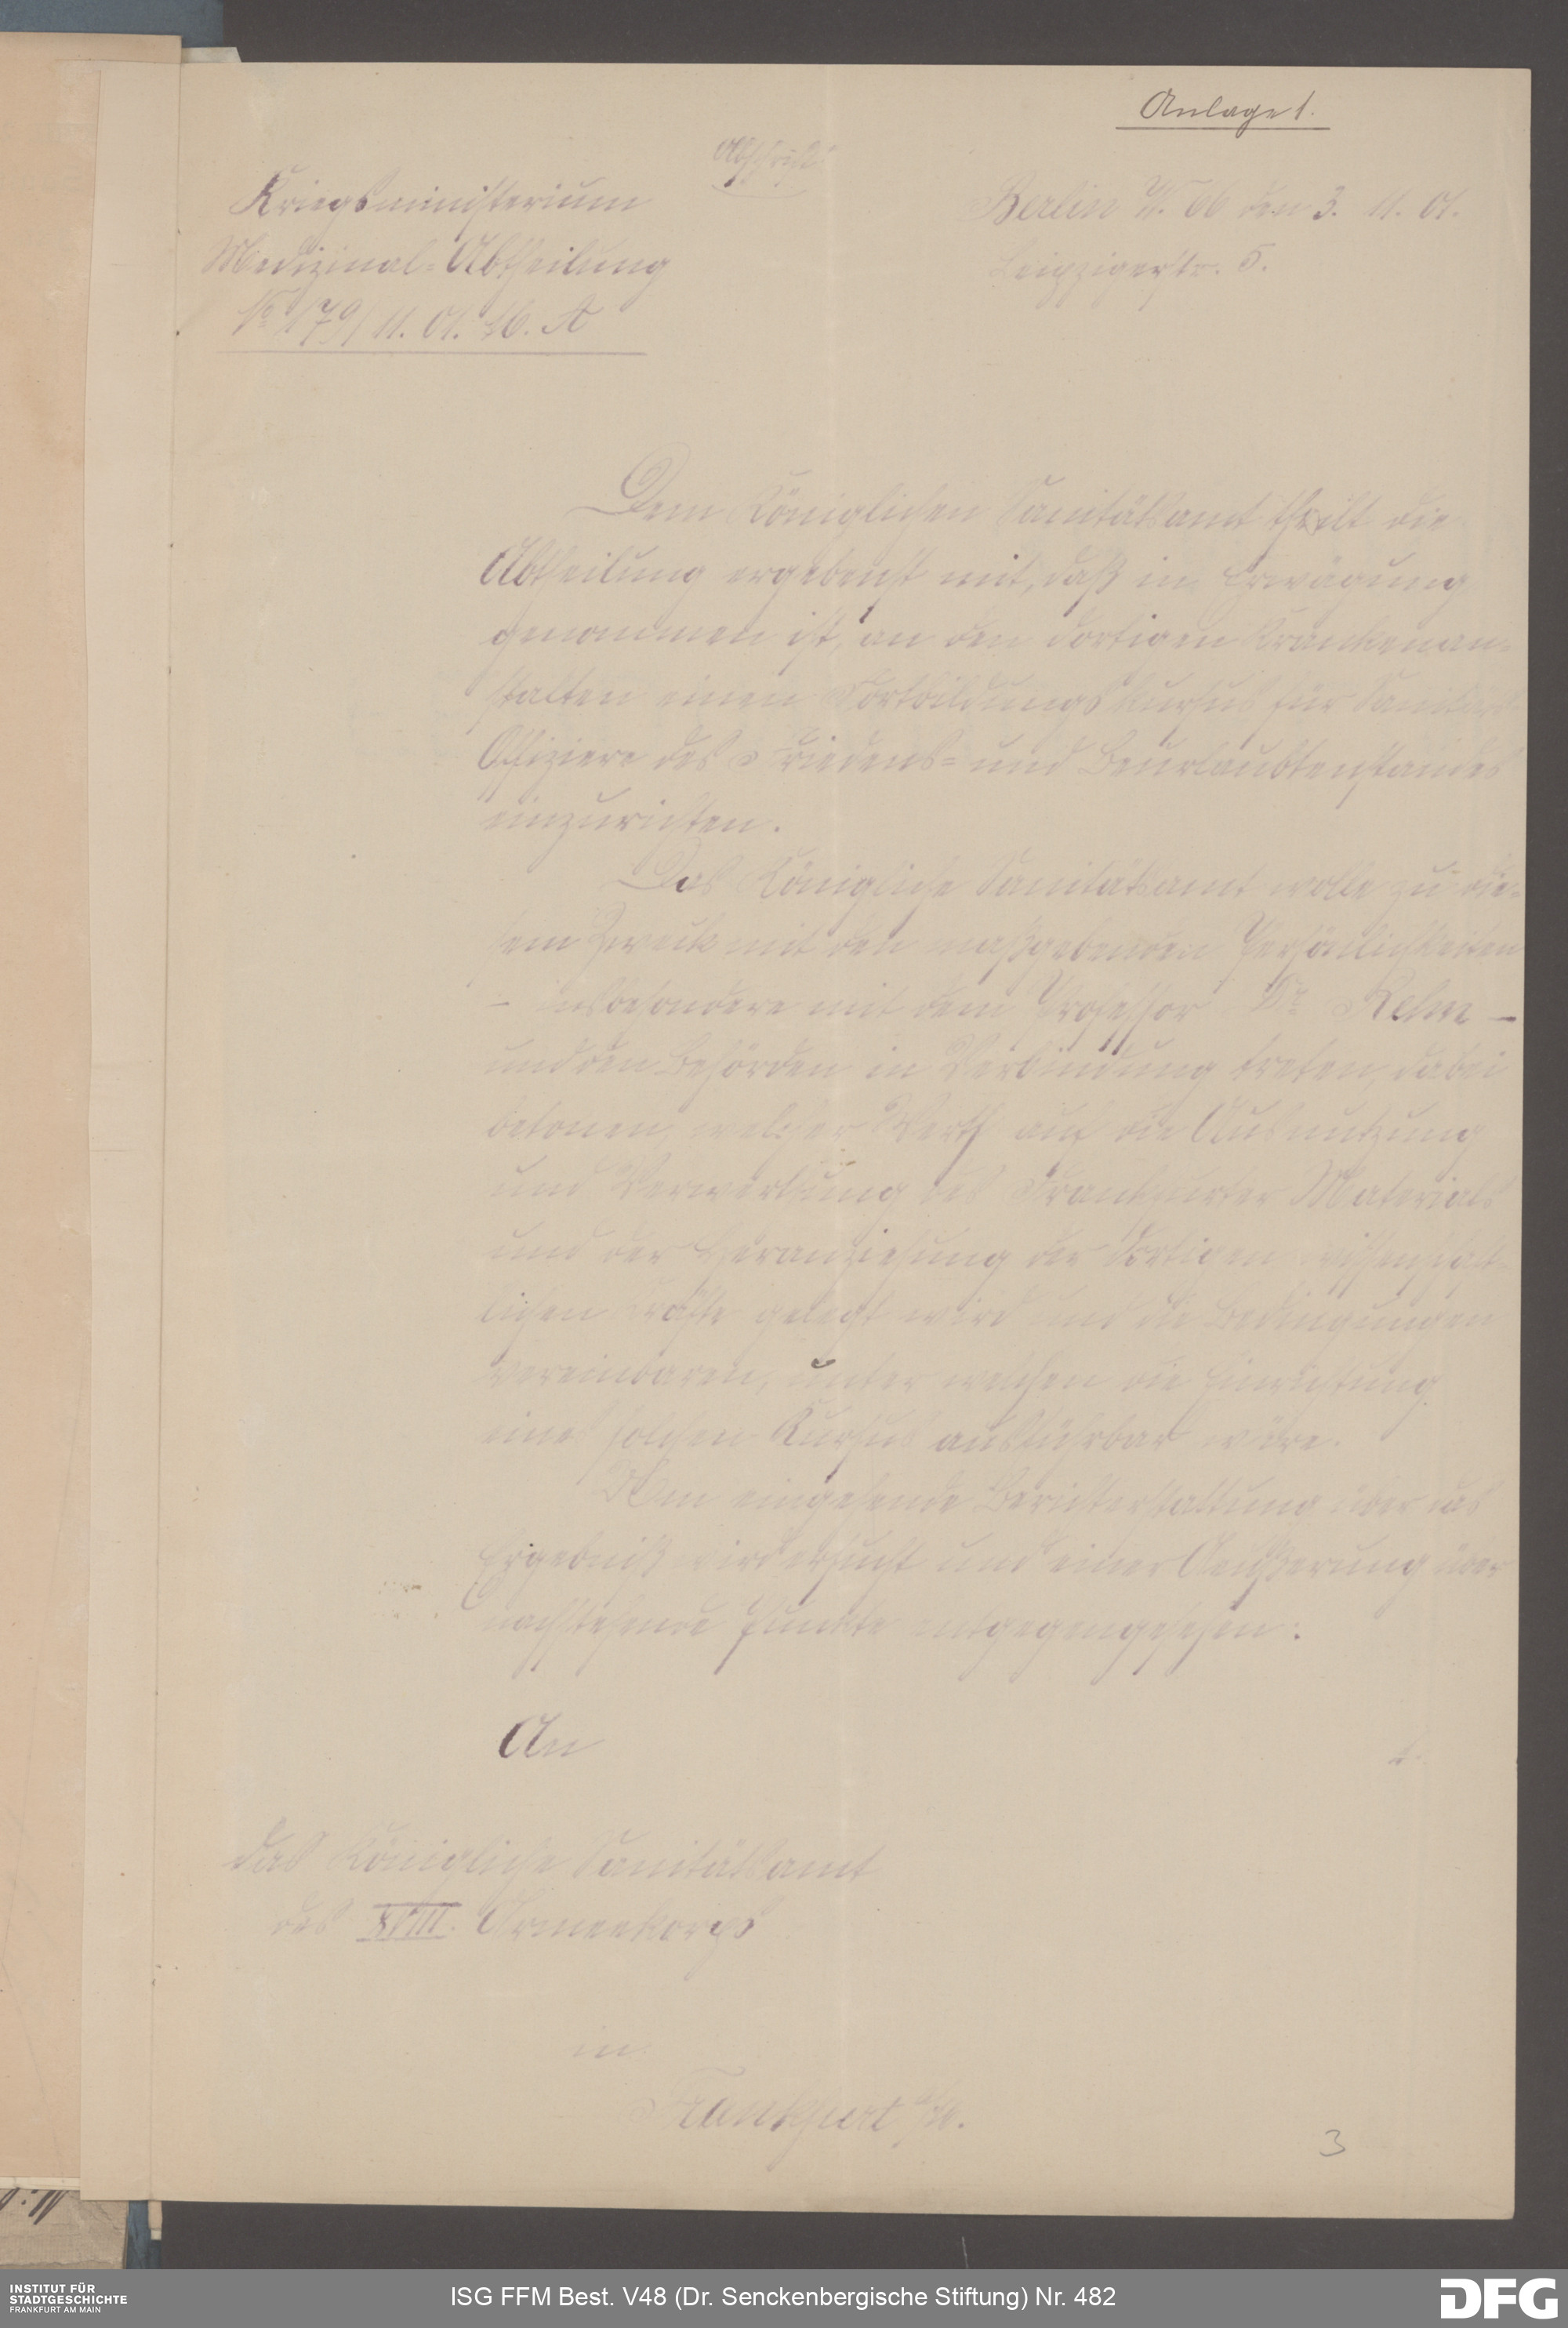 Anlage 1.
Abschrift
Kriegsministerium
Medizinal-Abtheilung
No 179/11. 01. M. A
Berlin W. 66 den 3. 11. 01.
Leipzigerstr. 5.
Dem Königlichen Sanitätsamt theilt die
Abtheilung ergebenst mit, daß in Erwägung
genommen ist, an den dortigen Krankenan-
stalten einen Fortbildungskursus für Sanitäts
Offiziere des Friedens- und Beurlaubtenstandes
einzurichten.
Das Königliche Sanitätsamt wolle zu die-
sem Zweck mit den maßgebenden Persönlichkeiten
- insbesondere mit dem Professor Dr. Rehn -
und den Behörden in Verbindung treten, dabei
betonen, welcher Werth auf die Ausnutzung
und Verwerthung des Frankfurter Materials
und der Heranziehung der dortigen wissenschaft-
lichen Kräfte gelegt wird und die Bedingungen
vereinbaren, unter welchen die Einrichtung
eines solchen Kursus ausführbar wäre.
Um eingehende Berichterstattung über das
Ergebniß wird ersucht und einer Aeußerung über
nachstehende Punkte entgegengesehen:
An
das Königliche Sanitätsamt
des XVIII. Armeekorps
in
Frankfurt a/M.
3
INSTITUT FÜR
STADTGESCHICHTE
FRANKFURT AM MAIN
ISG FFM Best. V48 (Dr. Senckenbergische Stiftung) Nr. 482
DFG